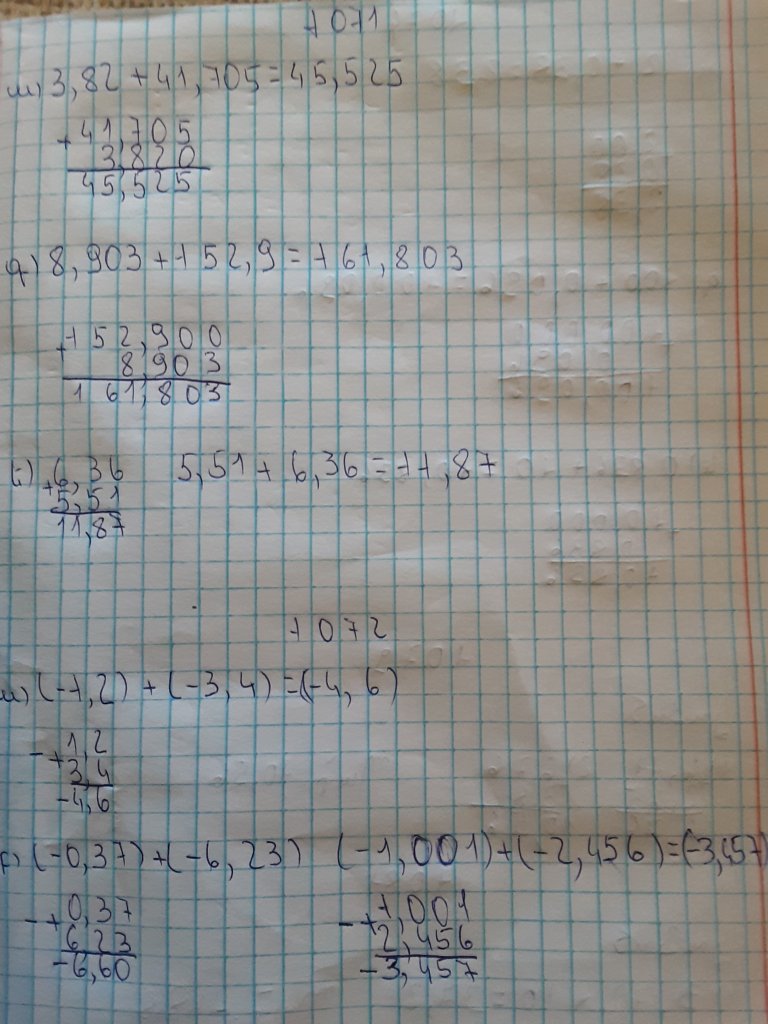 1071
m) 3,82 + 41,705 = 45,525
+ 41,705
3,820
45,525
q) 8,903 + 152,9 = 161,803
+ 152,900
8,903
161,803
+ 6,36 5,51 + 6,36 = 11,87
5,51
11,87
1072
(-1,2) + (-3,4) = (-4,6)
- + 1,2
3,4
-4,6
(-0,37) + (-6,23) (-1,001) + (-2,456) = (-3,457)
- + 0,37 - + 1,001
6,23 2,456
-6,60 -3,457